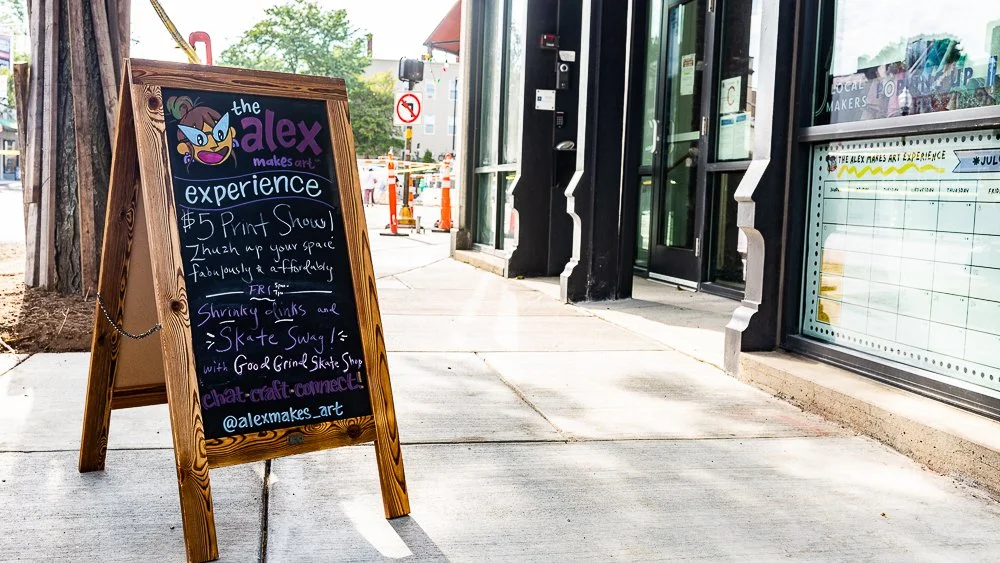 the
alex
makes art
experience
$5 Print Show!
Zhuzh up your space
fabulously & affordably
FRI 5pm-7pm
Shrinky dinks and
Skate Swag!
with Good Grind Skate Shop
chat·craft·connect!
@alexmakes_art
LOCAL
MAKERS
POP
UP
THE ALEX MAKES ART EXPERIENCE
*JUL
TUESDAY
WEDNESDAY
THURSDAY
FRI
C